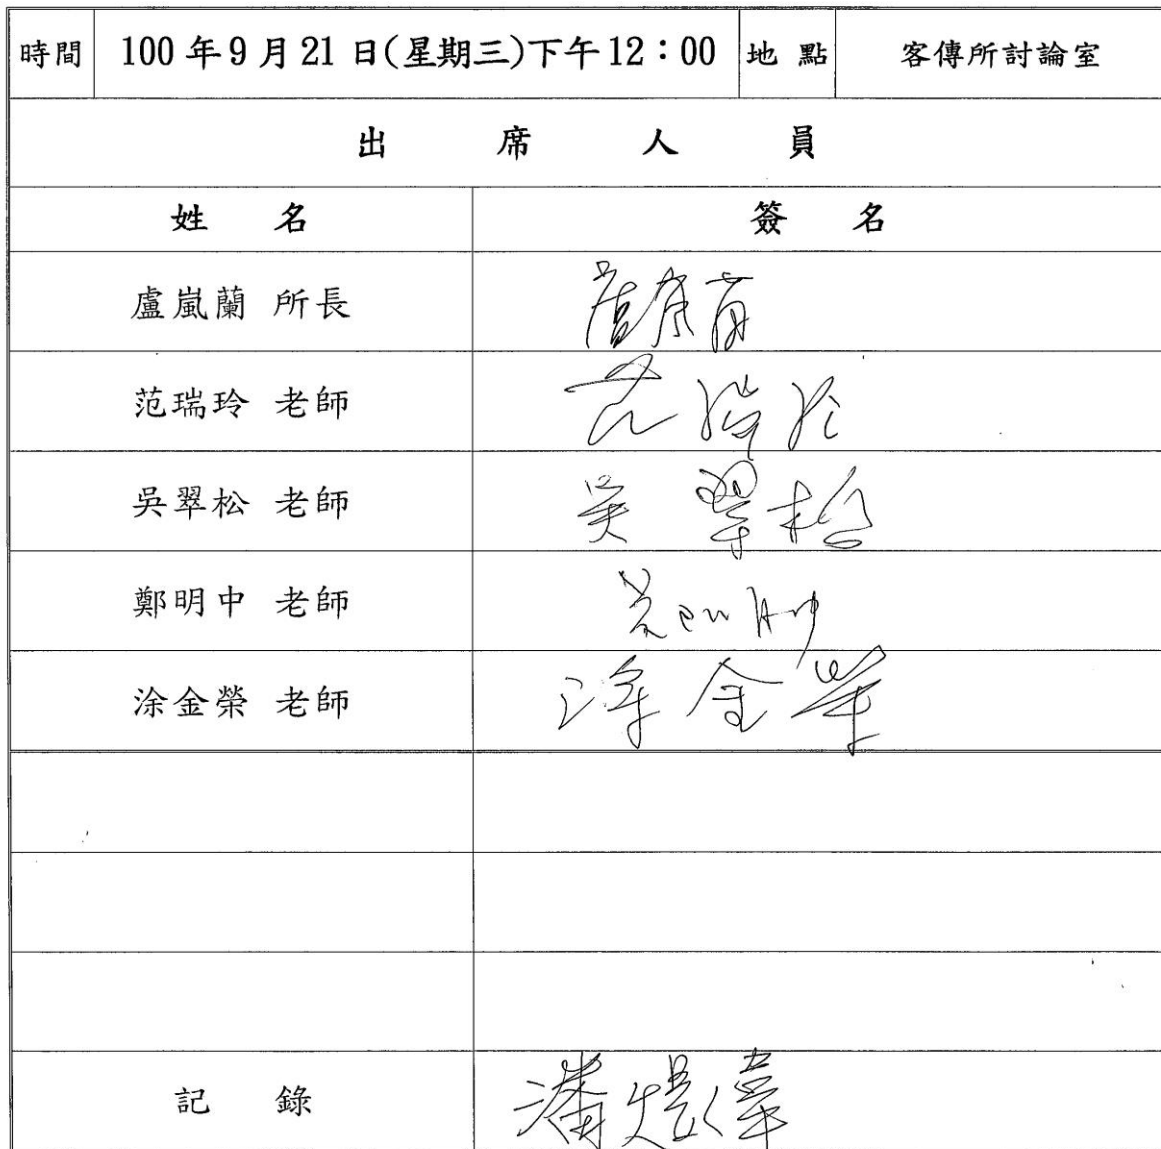 時間 100年9月21日(星期三)下午12：00 地點 客傳所討論室
出席人員
姓名 簽名
盧嵐蘭 所長 盧嵐蘭
范瑞玲 老師 范瑞玲
吳翠松 老師 吳翠松
鄭明中 老師
涂金榮 老師 涂金榮
記錄 潘